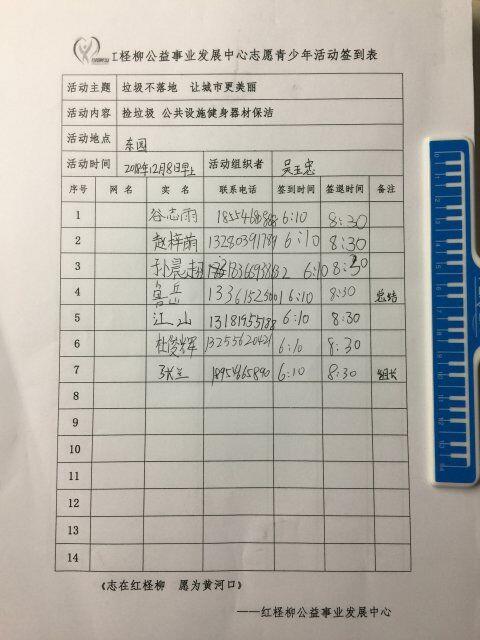 红柽柳公益事业发展中心志愿青少年活动签到表
活动主题 垃圾不落地 让城市更美丽
活动内容 捡垃圾 公共设施健身器材保洁
活动地点 东园
活动时间 2018年12月8日早上 活动组织者 吴玉忠
序号 网名 实名 联系电话 签到时间 签退时间 备注
1 谷志雨 6:10 8:30
2 赵梓萌 13280391789 6:10 8:30
3 孙晨翔 6:10 8:30
4 鲁岳 13361525001 6:10 8:30 总结
5 江山 13181955188 6:10 8:30
6 杜俊辉 13255620421 6:10 8:30
7 张兰 18954665890 6:10 8:30 组长
8
9
10
11
12
13
14
《志在红柽柳 愿为黄河口》
——红柽柳公益事业发展中心